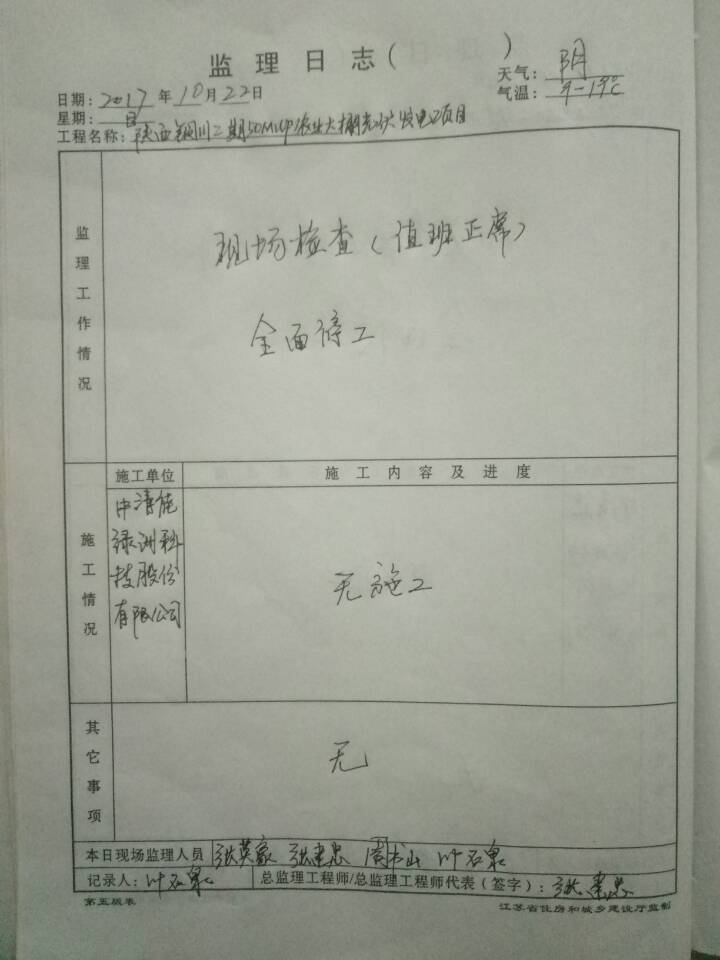 监理日志( )
天气: 阴
日期: 2017年10月22日
气温: 9-19℃
星期: 日
工程名称: 陕西铜川二期50MWP农业大棚光伏发电项目
监理工作情况
现场检查(值班正席)
全面停工
施工单位 施工内容及进度
施工情况
中清能
绿洲科
技股份
有限公司
无施工
其它事项
无
本日现场监理人员 张英豪 张建忠 周书山 叶石泉
记录人: 叶石泉 总监理工程师/总监理工程师代表(签字): 张建忠
第五版表 江苏省住房和城乡建设厅监制